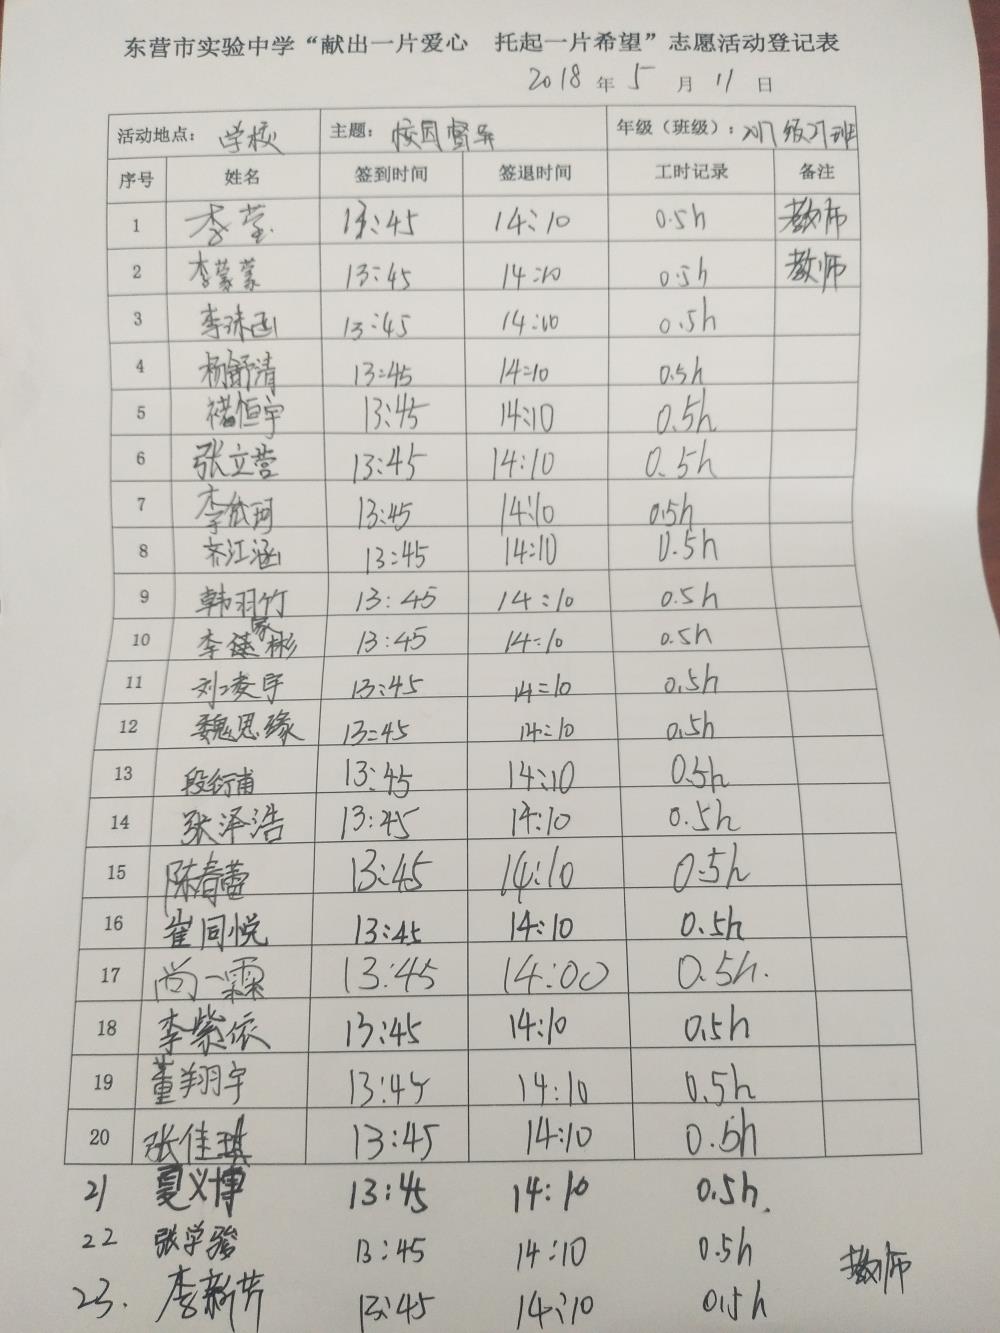 东营市实验中学“献出一片爱心 托起一片希望”志愿活动登记表
2018 年 5 月 11 日
活动地点： 学校 主题： 校园督导 年级（班级）： 2017级27班
序号 姓名 签到时间 签退时间 工时记录 备注
1 李莹 13:45 14:10 0.5h 教师
2 李蒙蒙 13:45 14:10 0.5h 教师
3 13:45 14:10 0.5h
4 杨舒清 13:45 14:10 0.5h
5 褚恒宇 13:45 14:10 0.5h
6 张立营 13:45 14:10 0.5h
7 李依珂 13:45 14:10 0.5h
8 齐江涵 13:45 14:10 0.5h
9 韩羽竹 13:45 14:10 0.5h
10 13:45 14:10 0.5h
11 刘凌宇 13:45 14:10 0.5h
12 魏思缘 13:45 14:10 0.5h
13 段衍甫 13:45 14:10 0.5h
14 张泽浩 13:45 14:10 0.5h
15 陈春蕾 13:45 14:10 0.5h
16 崔同悦 13:45 14:10 0.5h
17 尚一霖 13:45 14:00 0.5h.
18 李紫依 13:45 14:10 0.5h
19 董翔宇 13:45 14:10 0.5h
20 张佳琪 13:45 14:10 0.5h
21 夏义博 13:45 14:10 0.5h.
22 张学骏 13:45 14:10 0.5h
23. 李新芳 13:45 14:10 0.5h 教师